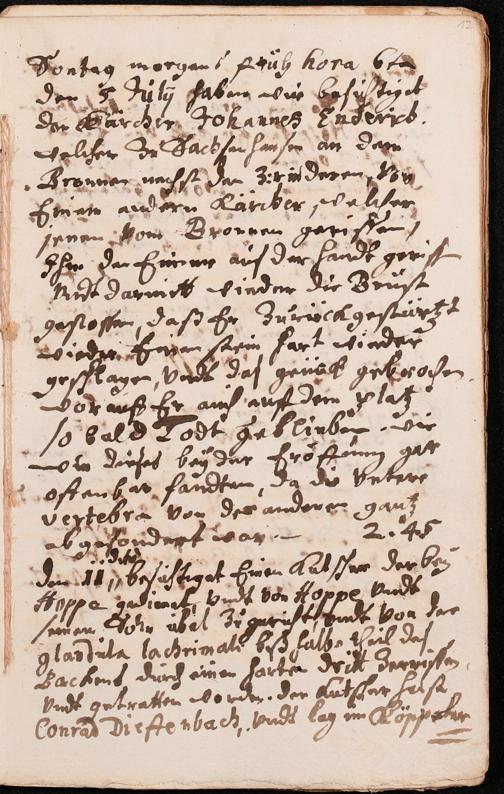 12
Sontag morgens früh hora 6ta
den 5 July haben wir besichtiget
den Kärcher Johannes Enderich.
welcher zu Sachsenhausen an dem
Bronnen nechst den 3 rinderen, Von
Einem andern Kärcher, welcher
jenen Vom Bronnen gerissen,
Ihm den Eimer aus der handt geriss
Undt darmitt wieder die Brust
gestossen, daß Er Zurückgestürtzt
wieder Einen stein hart wieder
geschlagen, Undt das genick gebrochen
worauß Er auch auff dem platz
so bald Todt geblieben. wie
wir dieses bey der Eröffnung gar
offenbar fandten, da die
vertebra von der anderen gantz
abgesondert war. 2.45
den 11 dito besichtiget Einen Kutscher der bey
Hoppe gedienet, Undt von Hoppe Undt
seinem Sohn übel Zugericht Undt von der
glandula lachrimali biß halbe theil des
Backens durch einen harten dritt Zerrissen,
Undt getretten worden. der Kutscher heist
Conrad Dieffenbach, Undt lag im